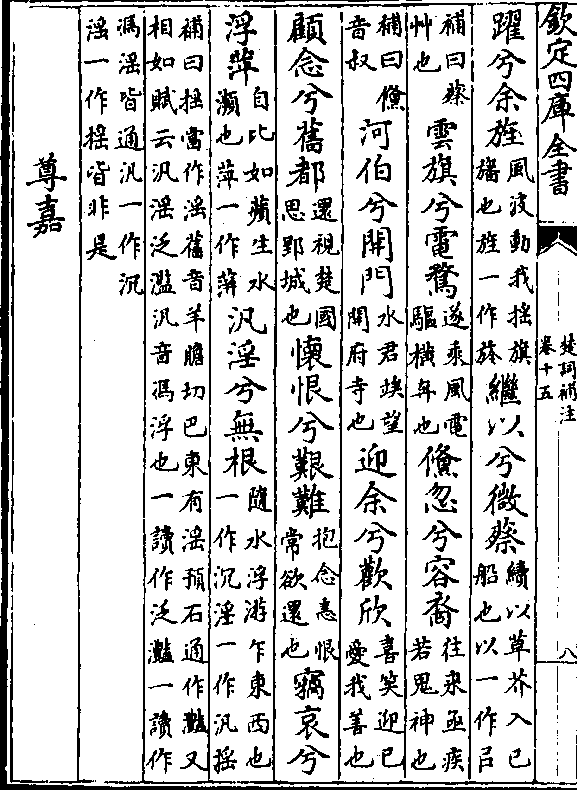 欽定四庫全書
楚詞補注
卷十五
八
躍兮余旌風波動我搖旗
牆也旌一作於繼以兮微蔡續以草芥入己
船也以一作㠯
補曰蔡
艸也雲旗兮電騖遂乘風電
驅橫奔也儵忽兮容裔往來亟疾
若鬼神也
補曰儵
音叔河伯兮開門水君竢望
開府寺也迎余兮歡欣喜笑迎己
愛我善也
顧念兮舊都還視楚國
思郢城也懷恨兮艱難抱念恚恨
常欲還也竊哀兮
浮萍自比如蘋生水
瀕也萍一作蓱汎淫兮無根隨水浮游乍東西也
一作沉淫一作汎搖
補曰搖當作淫舊音羊膽切巴東有淫預石通作灩又
相如賦云汎淫泛濫汎音馮浮也一讀作泛灩一讀作
馮淫皆通汎一作沉
淫一作搖皆非是
尊嘉